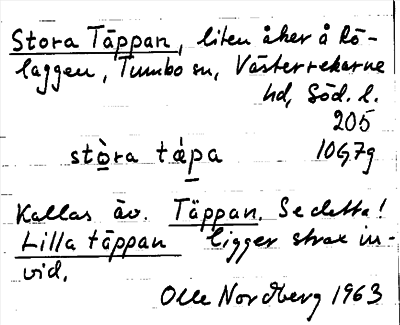 Stora Täppan, liten åker å Rö-
laggen, Tumbo sn, Västerrekarne
hd, Söd. l.
205
stòra tápa 10G7g
Kallas äv. Täppan. Se detta!
Lilla täppan ligger strax in-
vid.
Olle Nordberg 1963